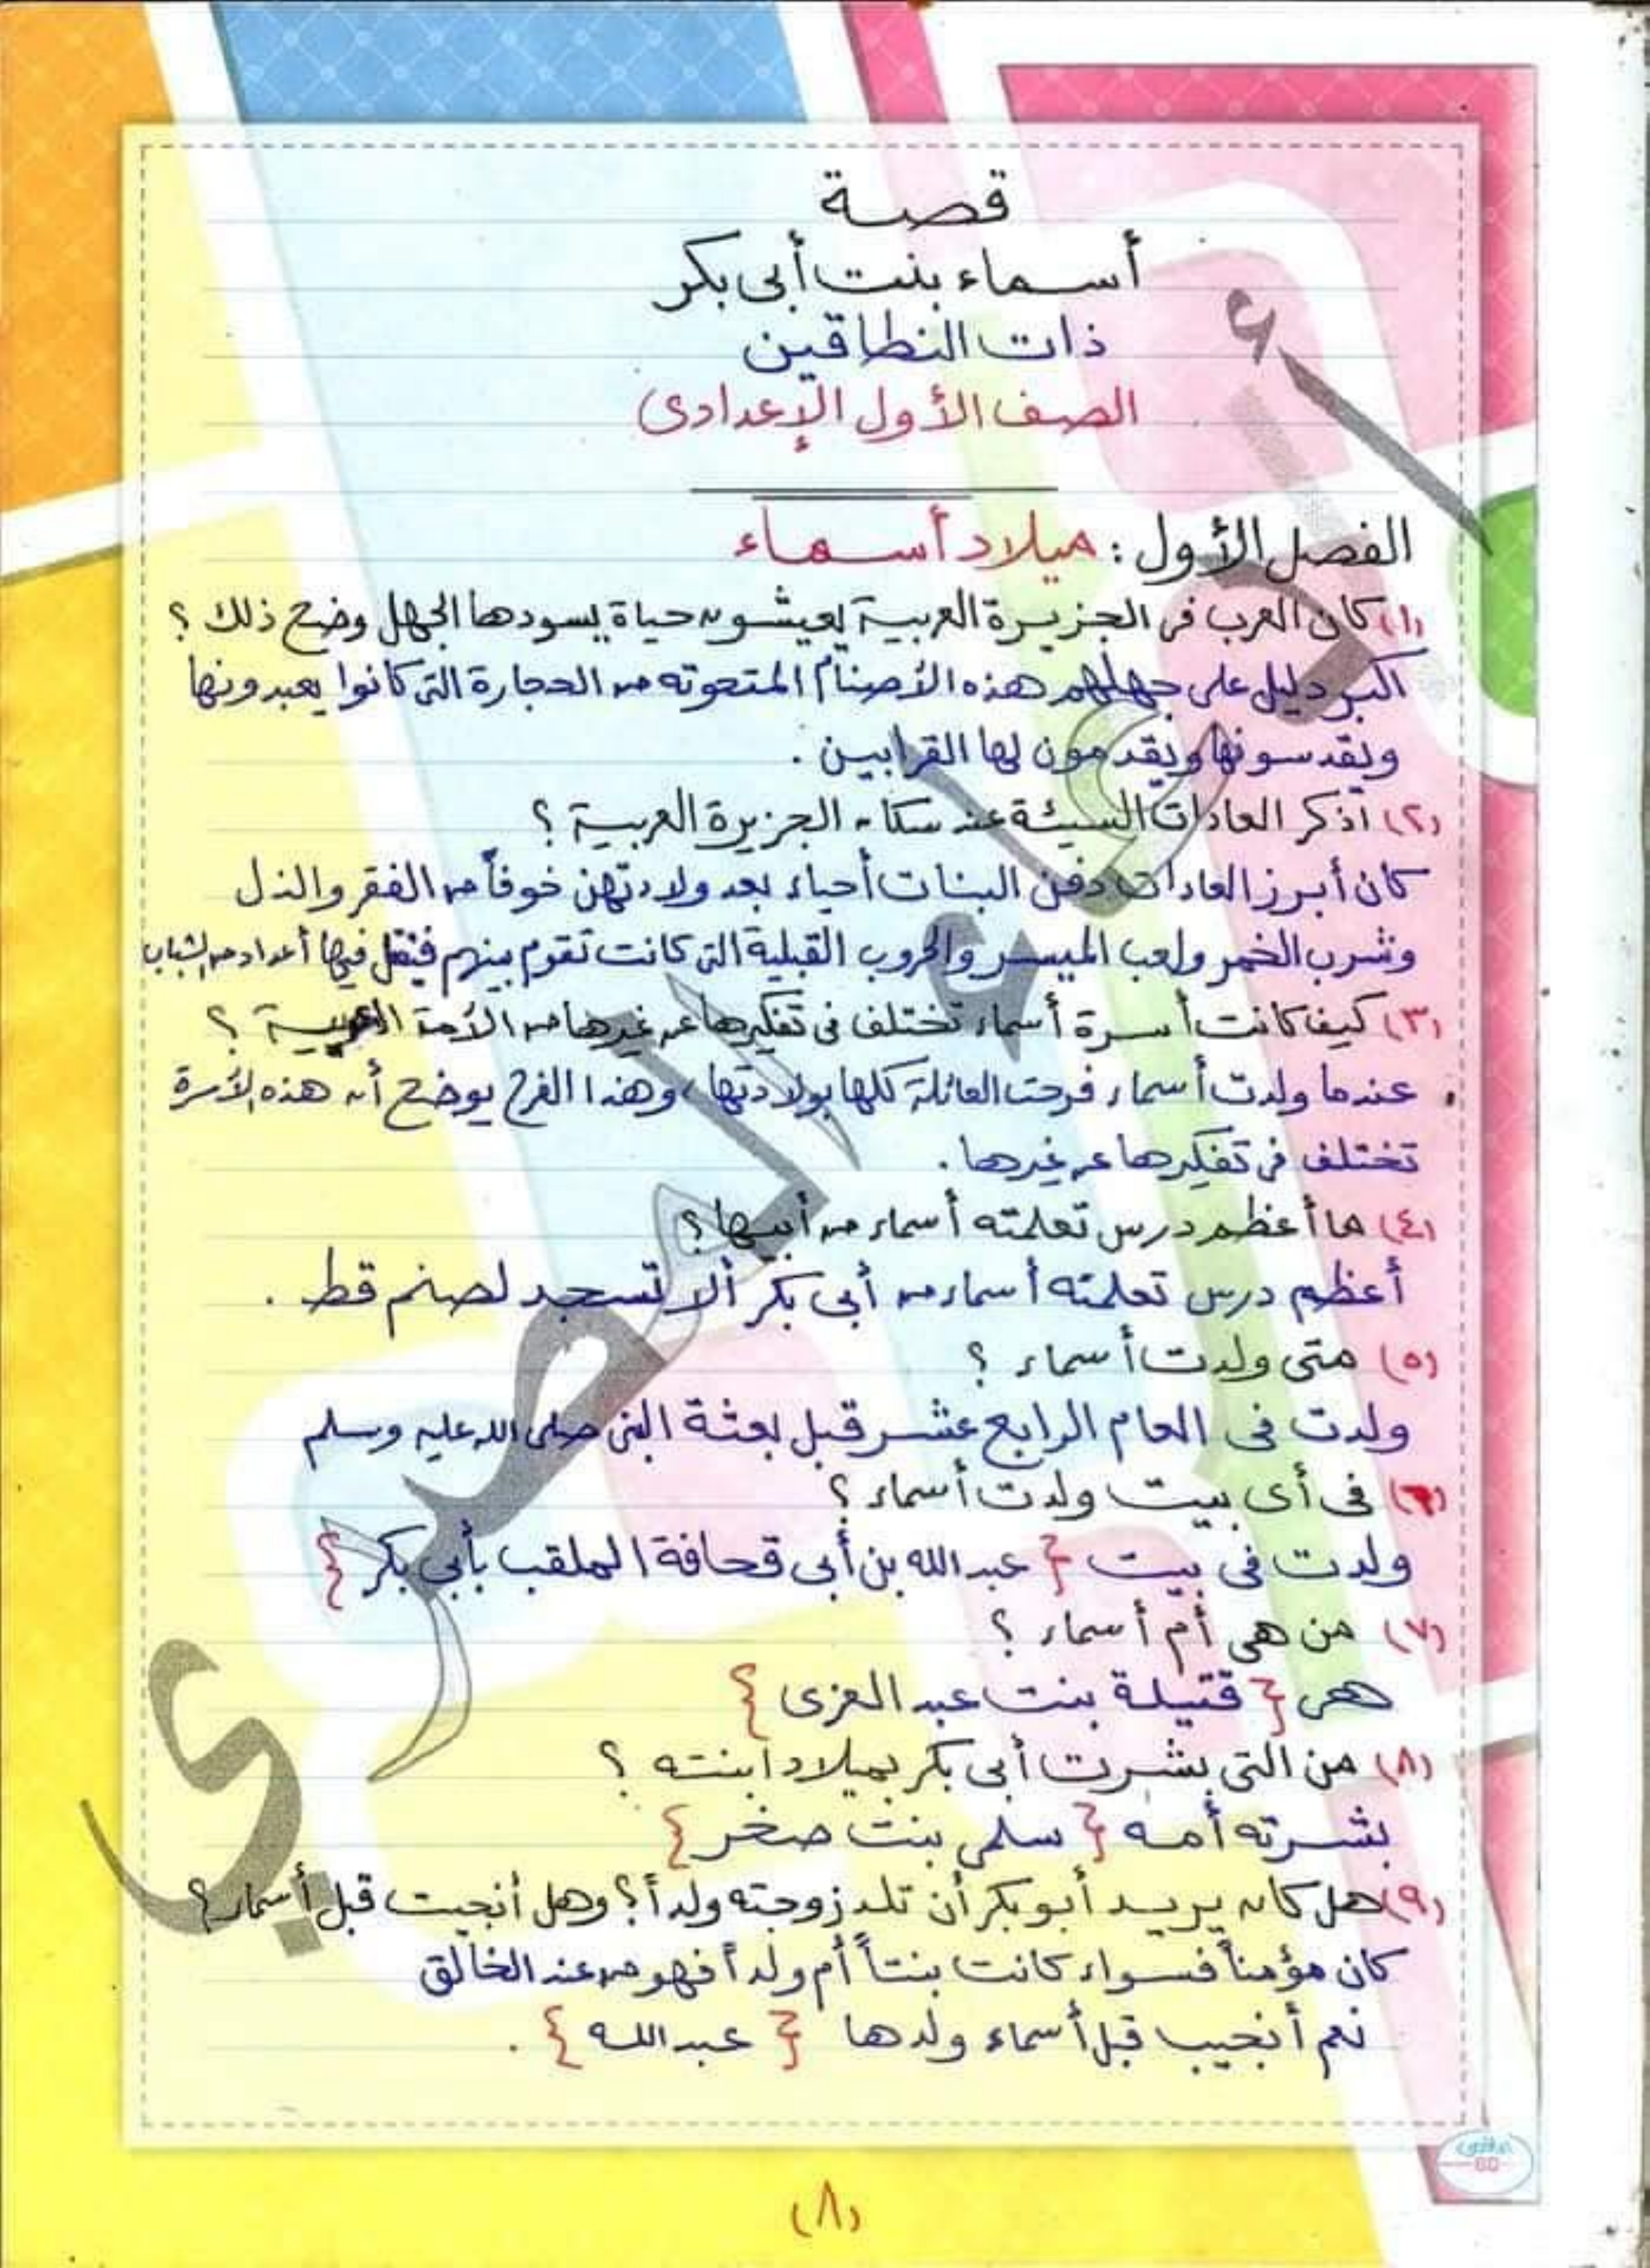 قصة
أسماء بنت أبى بكر
ذات النطاقين
الصف الأول الإعدادى
الفصل الأول : ميلاد أسماء
(١) كان العرب فى الجزيرة العربية يعيشون حياة يسودها الجهل وضح ذلك ؟
اكبر دليل على جهلهم هذه الأصنام المنحوته من الحجارة التى كانوا يعبدونها
ويقدسونها ويقدمون لها القرابين .
(٢) أذكر العادات السيئة عند سكان الجزيرة العربية ؟
كان أبرز العادات دفن البنات أحياء بعد ولادتهن خوفاً من الفقر والذل
وشرب الخمر ولعب الميسر والحروب القبلية التى كانت تقوم بينهم فيقتل فيها أعداد من الشباب
(٣) كيف كانت أسرة أسماء تختلف فى تفكيرها عن غيرها من الأمة العربية ؟
عندما ولدت أسماء فرحت العائلة كلها بولادتها ، وهذا الفرح يوضح أن هذه الأسرة
تختلف فى تفكيرها عن غيرها .
(٤) ما أعظم درس تعلمته أسماء من أبيها ؟
أعظم درس تعلمته أسماء من أبى بكر ألا تسجد لصنم قط .
(٥) متى ولدت أسماء ؟
ولدت فى العام الرابع عشر قبل بعثة النبى صلى الله عليه وسلم
(٦) فى أى بيت ولدت أسماء ؟
ولدت فى بيت { عبد الله بن أبى قحافة الملقب بأبى بكر }
(٧) من هى أم أسماء ؟
هى { قتيلة بنت عبد العزى }
(٨) من التى بشرت أبى بكر بميلاد ابنته ؟
بشرته أمه { سلمى بنت صخر }
(٩) هل كان يريد أبو بكر أن تلد زوجته ولداً ؟ وهل أنجبت قبل أسماء ؟
كان مؤمناً فسواء كانت بنتاً أم ولداً فهو من عند الخالق
نعم أنجب قبل أسماء ولدها { عبد الله } .
(٨)